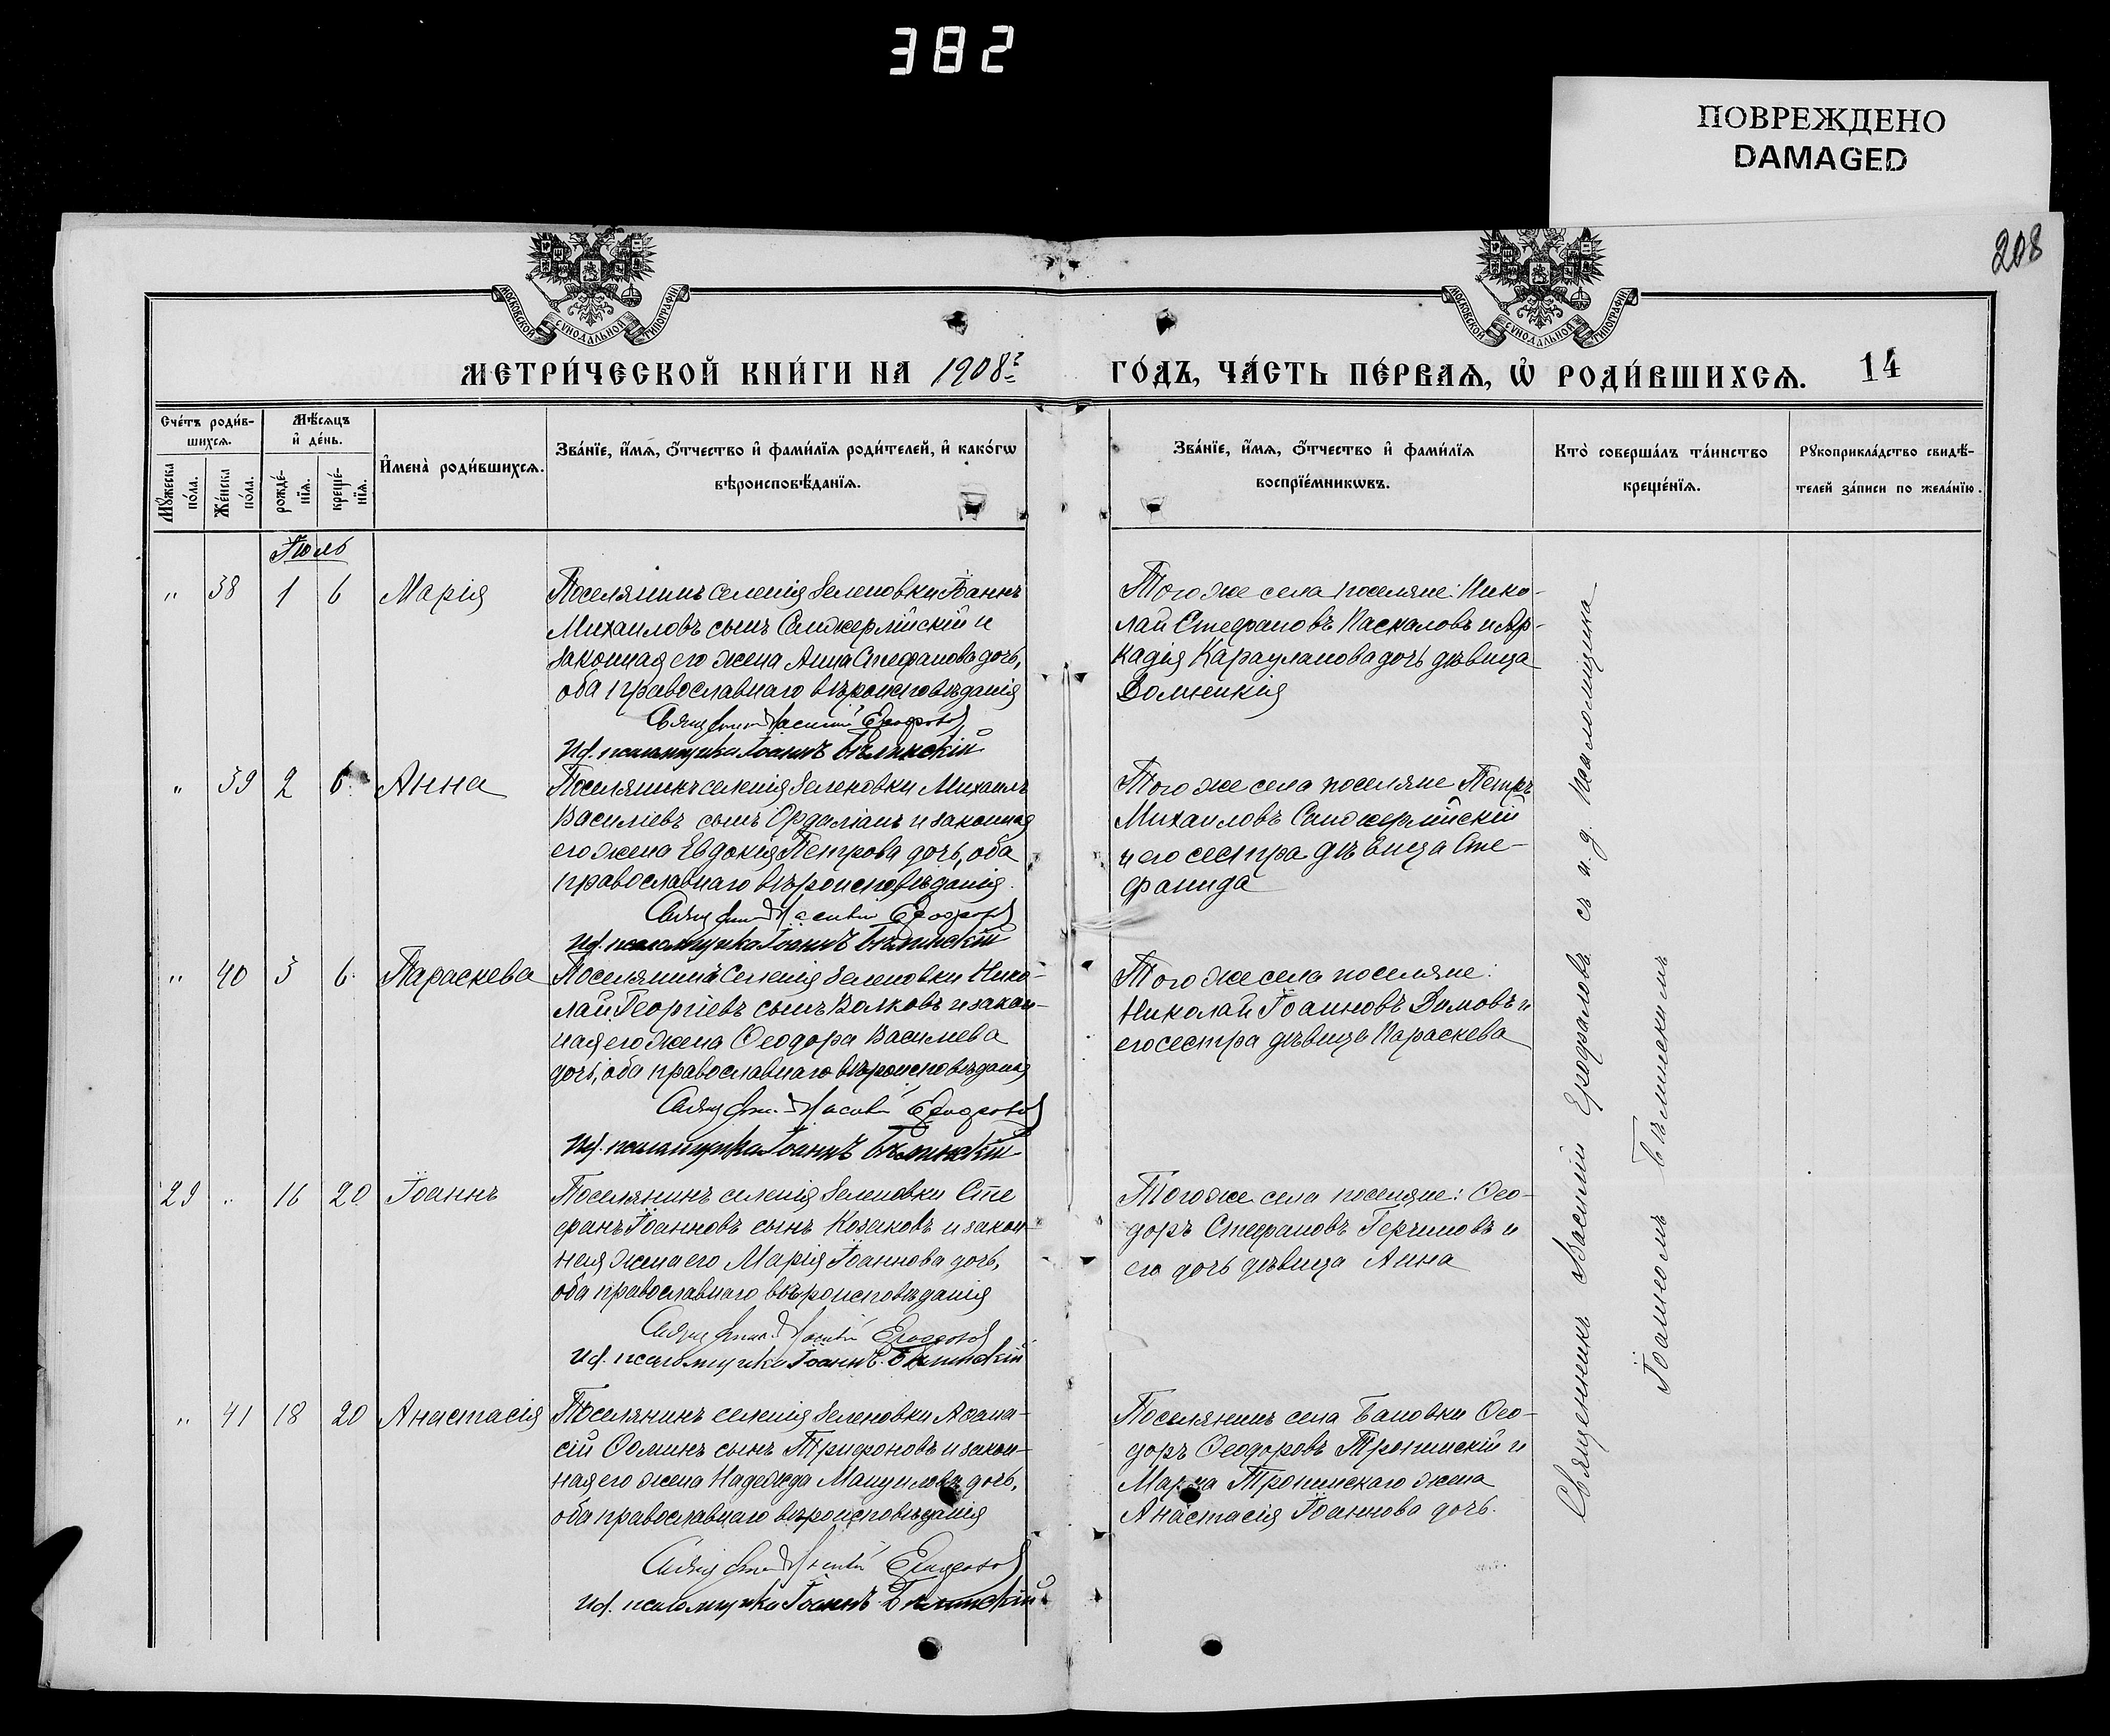 382
ПОВРЕЖДЕНО
DAMAGED
208
МОСКОВСКОЙ СѴНОДАЛЬНОЙ ТИПОГРАФІИ
МОСКОВСКОЙ СѴНОДАЛЬНОЙ ТИПОГРАФІИ
МЕТРИ́ЧЕСКОЙ КНИ́ГИ НА 1908 г.
ГО́ДЪ, ЧА́СТЬ ПЕ́РВАѦ, Ѡ҆ РОДИ́ВШИХСѦ. 14
Сче́тъ роди́в-
шихсѧ.
Мꙋ́жеска
по́ла.
Же́нска
по́ла.
Мѣ́сѧцъ
и҆ де́нь.
рожде́-
нїѧ.
креще́-
нїѧ.
И҆мена̀ роди́вшихсѧ.
Зва́нїе, и҆́мѧ, ѻ҆́тчество и҆ фами́лїѧ роди́телей, и҆ како́гѡ
вѣроисповѣ́данїѧ.
Зва́нїе, и҆́мѧ, ѻ҆́тчество и҆ фами́лїѧ
воспрїе́мникѡвъ.
Кто̀ соверша́лъ та́инство
креще́нїѧ.
Рꙋкоприкла́дство свидѣ́-
телей за́писи по жела́нїю.
Іюль
" 38 1 6 Марія
Поселянинъ селенія Зеленовки Іоаннъ
Михаиловъ сынъ Санджерлійскій и
законная его жена Анна Стефанова дочь,
оба православнаго вѣроисповѣданія
Священникъ Василій
И.д. псаломщика Іоаннъ Бѣлинскій
Того же села поселяне: Нико-
лай Стефановъ Паскаловъ и Ар-
кадія Карауланова дочь дѣвица
" 39 2 6 Анна
Поселянинъ селенія Зеленовки Михаилъ
Василіевъ сынъ и законная
его жена Евдокія Петрова дочь, оба
православнаго вѣроисповѣданія.
Священникъ Василій
И.д. псаломщика Іоаннъ Бѣлинскій
Того же села поселяне Петръ
Михаиловъ Санджерлійскій
и его сестра дѣвица Сте-
фанида
" 40 3 6 Параскева
Поселянинъ селенія Зеленовки Нико-
лай Георгіевъ сынъ Волковъ и закон-
ная его жена Ѳеодора Василіева
дочь, оба православнаго вѣроисповѣданія
Священ. Василій
И.д. псаломщика Іоаннъ Бѣлинскій
Того же села поселяне:
Николай Іоанновъ Димовъ и
его сестра дѣвица Параскева
29 " 16 20 Іоаннъ
Поселянинъ селенія Зеленовки Сте
фанъ Іоанновъ сынъ Козаковъ и закон-
ная жена его Марія Іоаннова дочь,
оба православнаго вѣроисповѣданія
Священник. Василій
И.д. псаломщика Іоаннъ Бѣлинскій
Того же села поселяне: Ѳео-
доръ Стефановъ Герчиновъ и
его дочь дѣвица Анна
" 41 18 20 Анастасія
Поселянинъ селенія Зеленовки Аѳана-
сій Ѳоминъ сынъ Трифоновъ и закон-
ная его жена Надежда Мануилова дочь,
оба православнаго вѣроисповѣданія
Священник Василій
И.д. псаломщика Іоаннъ Бѣлинскій
Поселянинъ села Бановки Ѳео-
доръ Ѳеодоровъ Тропинскій и
Марка Тропинскаго жена
Анастасія Іоаннова дочь.
Священникъ Василій Ерофаловъ съ и. д. псаломщика
Іоанномъ Бѣлинскимъ